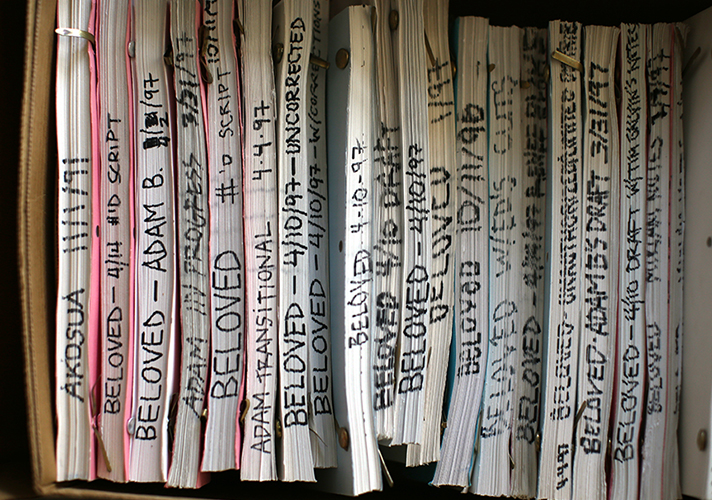 AKOSUA 11/11/91
BELOVED - 4/14 #'D SCRIPT
BELOVED - ADAM B. /97
ADAM IN PROGRESS 3/31/97
BELOVED #'D SCRIPT
ADAM TRANSITIONAL 4.4.97
BELOVED - 4/10/97 - UNCORRECTED
BELOVED - 4/10/97 - W/CORRECTIONS
BELOVED 4-10-97
BELOVED 4/10 DRAFT
BELOVED - 4/10/97
BELOVED 1/97
BELOVED 10/11/96
BELOVED
BELOVED
BELOVED
BELOVED ADAM B'S DRAFT 3/31/97
BELOVED - 4/10 DRAFT W/TIM GALVIN'S NOTES
BELOVED NOTES